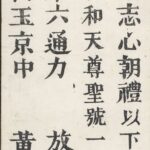 志心朝禮以下
和天尊聖號一
十六通力 放
玉京中 黃